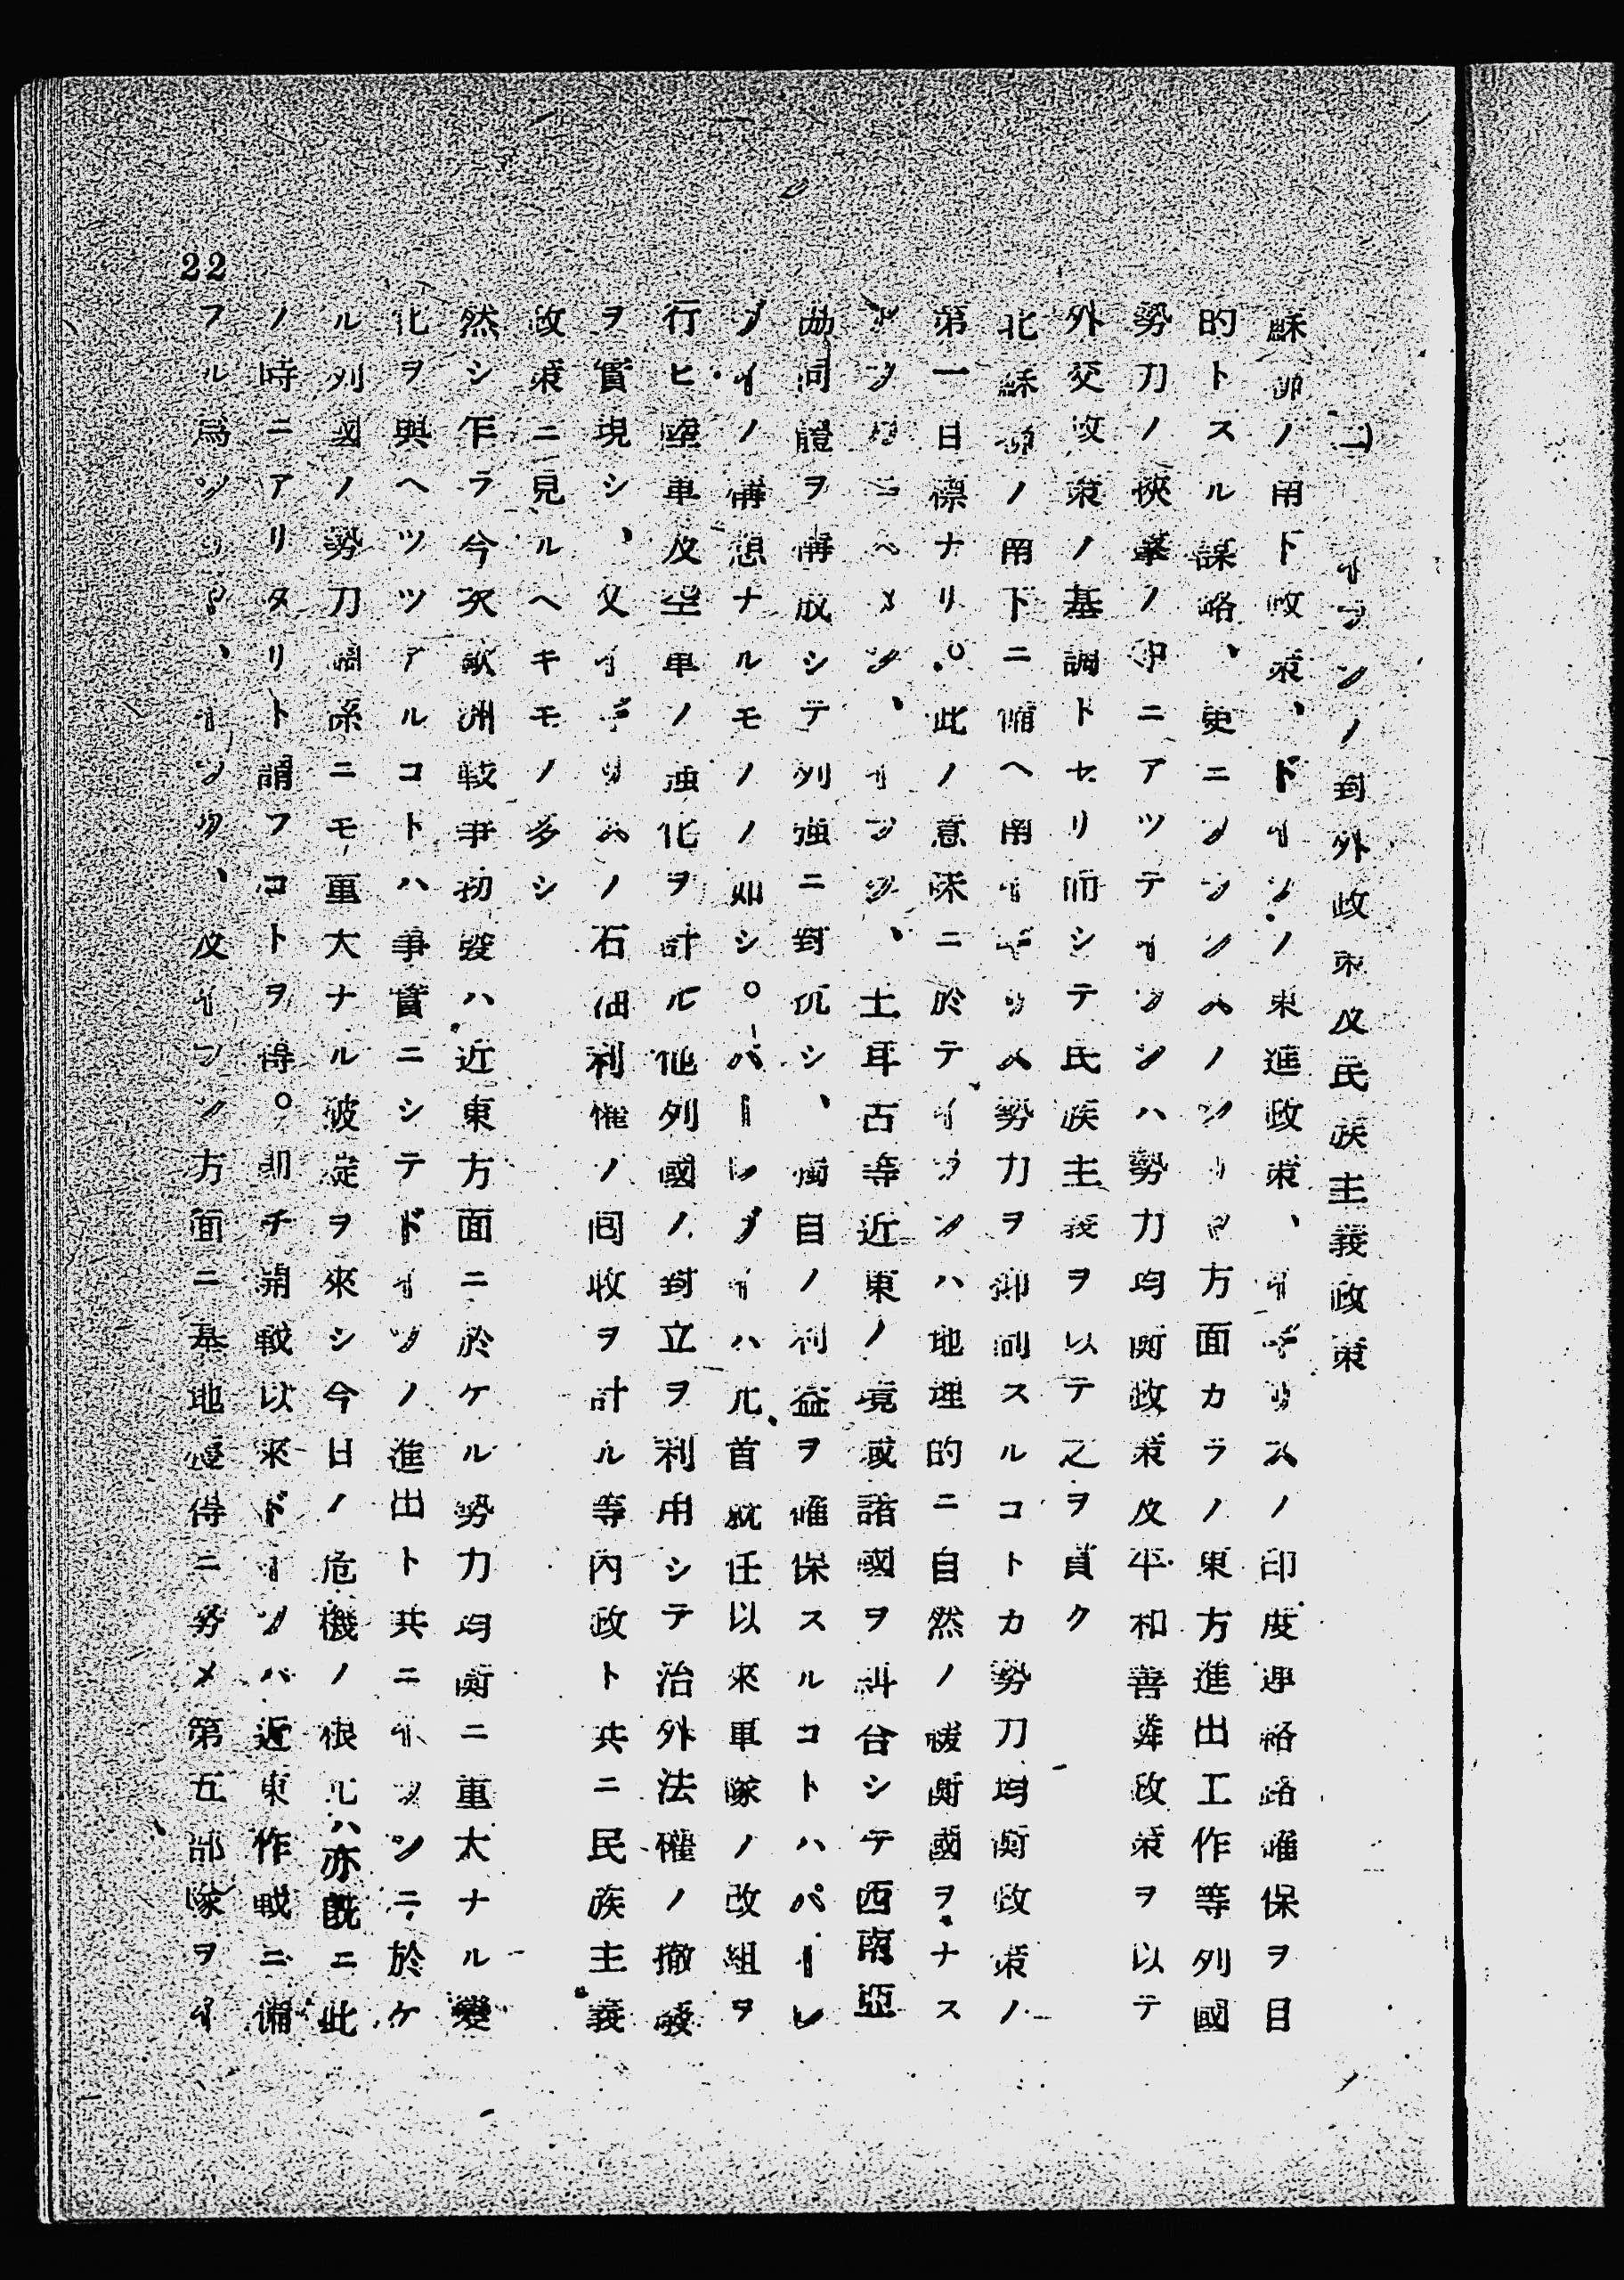 (二) イランノ對外政策及民族主義政策
蘇聯ノ南下政策、ドイツノ東進政策、イギリスノ印度連絡路確保ヲ目
的トスル謀略、更ニフランスノシリア方面カラノ東方進出工作等列國
勢力ノ挾撃ノ中ニアツテイランハ勢力均衡政策及平和善隣政策ヲ以テ
外交政策ノ基調トセリ而シテ民族主義ヲ以テ之ヲ貫ク
北蘇聯ノ南下ニ備ヘ南イギリス勢力ヲ抑制スルコトカ勢力均衡政策ノ
第一目標ナリ。此ノ意味ニ於テイランハ地理的ニ自然ノ緩衝國ヲナス
アフガニスタン、イラン、土耳古等近東ノ境域諸國ヲ糾合シテ西南亞
協同體ヲ構成シテ列強ニ對抗シ、獨自ノ利益ヲ確保スルコトハパーレ
ブイノ構想ナルモノノ如シ。パーレブイハ元首就任以來軍隊ノ改組ヲ
行ヒ陸軍及空軍ノ強化ヲ計ル他列國ノ對立ヲ利用シテ治外法權ノ撤廢
ヲ實現シ、又イギリスノ石油利權ノ回收ヲ計ル等内政ト共ニ民族主義
政策ニ見ルヘキモノ多シ
然シ乍ラ今次歐洲戰爭勃發ハ近東方面ニ於ケル勢力均衡ニ重大ナル變
化ヲ與ヘツツアルコトハ事實ニシテドイツノ進出ト共ニイランニ於ケ
ル列國ノ勢力關係ニモ重大ナル破綻ヲ來シ今日ノ危機ノ根元ハ亦既ニ此
ノ時ニアリタリト謂フコトヲ得。即チ開戰以來ドイツハ近東作戰ニ備
フル爲シリア、イラク、及イラン方面ニ基地獲得ニ努メ第五部隊ヲイ
22